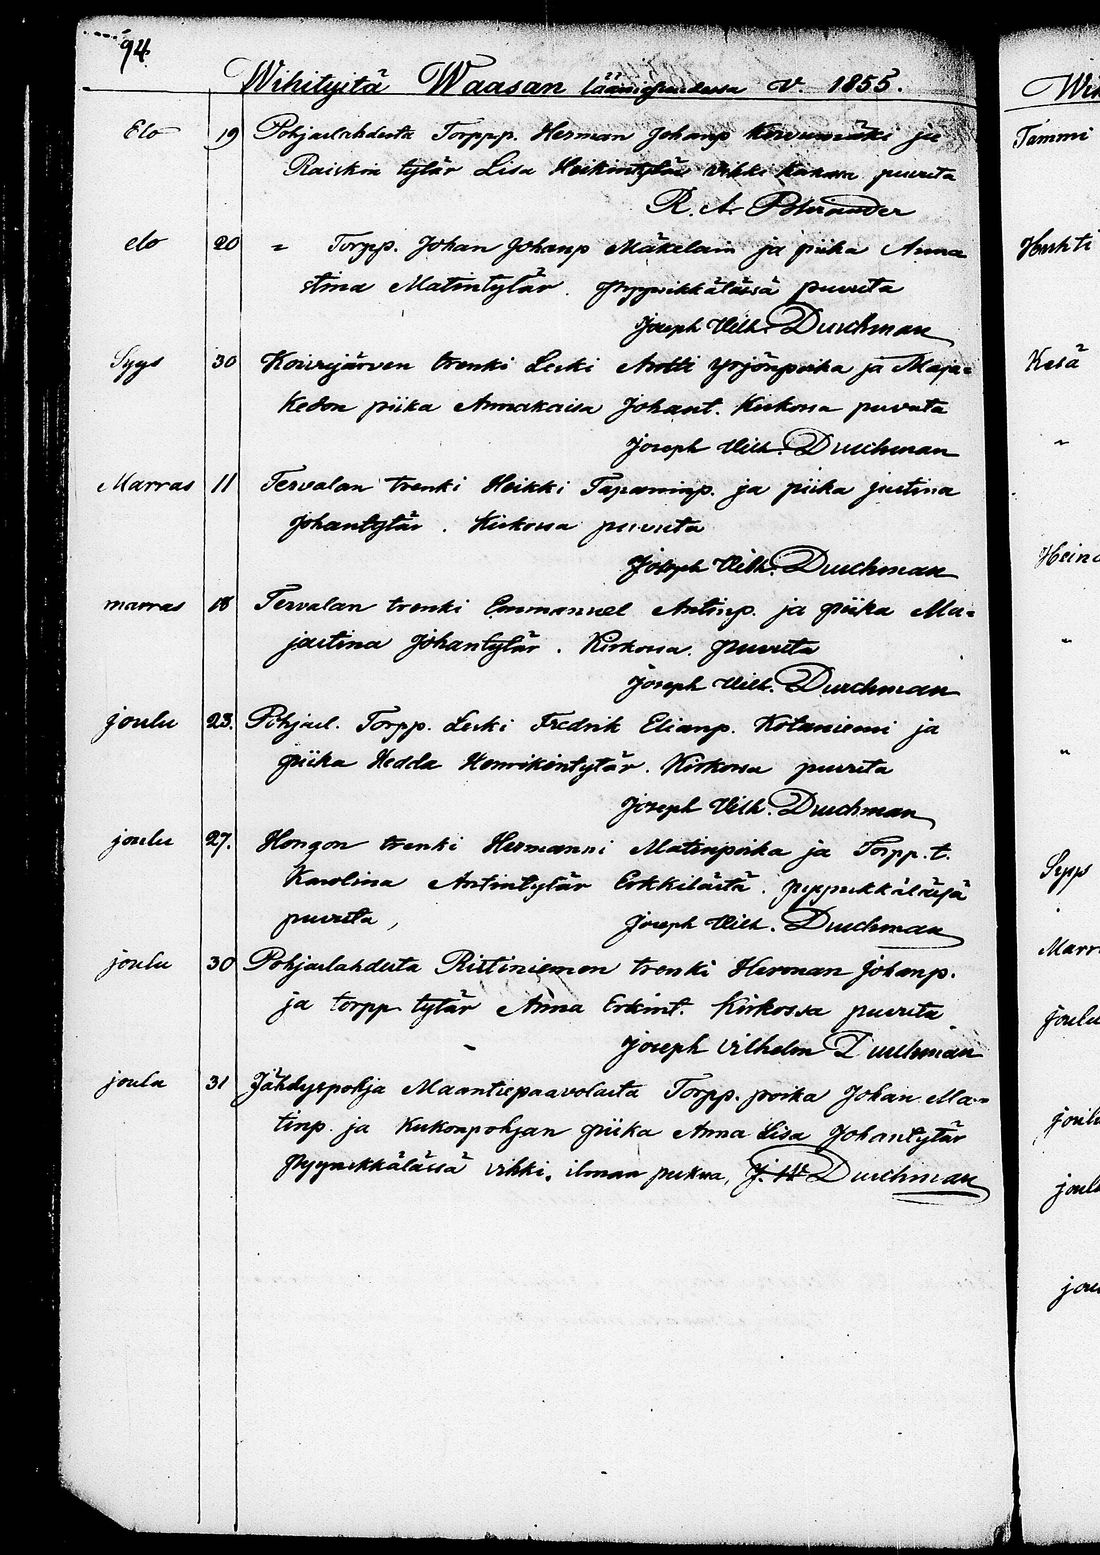 94.
Wihityitä Waasan lääniguidussa v. 1855.
Elo 19 Pohjaslahdesta Torppp. Herman Johanp ja
Raiskin tytär Lisa Heikintytär Vihki Kanssa puvuta
R. A. Polviander
elo 20 " Torpp. Johan Johanp Mäkeläin ja piika Anna
stina Matintytär. puvuta
Joseph Vilh. Durchman
Syys 30 trenki Leski Antti Yrjönpoika ja Maja=
kedon piika Annakaisa Johant. Kirkossa puvuta
Joseph Vilh. Durchman
Marras 11 Tervalan trenki Heikki Tapaninp. ja piika justina
johantytär. Kirkossa puvuta
Joseph Vilh. Durchman
marras 18 Tervalan trenki Emmanuel Antinp. ja piika Ma=
jastina johantytär. Kirkossa. puvuta
Joseph Vilh. Durchman
joulu 23. Pohjasl. Torpp. Leski Fredrik Elianp. Kotaniemi ja
piika Hedda Henrikintytär. Kirkossa puvuta
Joseph Vilh. Durchman
joulu 27. Hongon trenki Hermanni Matinpoika ja Torpp. t.
Karolina Antintytär Erkkilästä. pyynikkälässä
puvuta, Joseph Vilh. Durchman
joulu 30 Pohjaslahdesta Rittiniemen trenki Herman Johanp.
ja torpp tytär Anna Erkint. Kirkossa puvuta
Joseph Vilhelm Durchman
joulu 31 Jähdyspohja Maantiepaavolasta Torpp. poika Johan Ma=
tinp. ja Kukonpohjan piika Anna Lisa Johantytär
Pyynikkälässä vihki. ilman pukua, J. W Durchman
Tammi
Huhti
Kesä
"
"
"
Syys
joulu